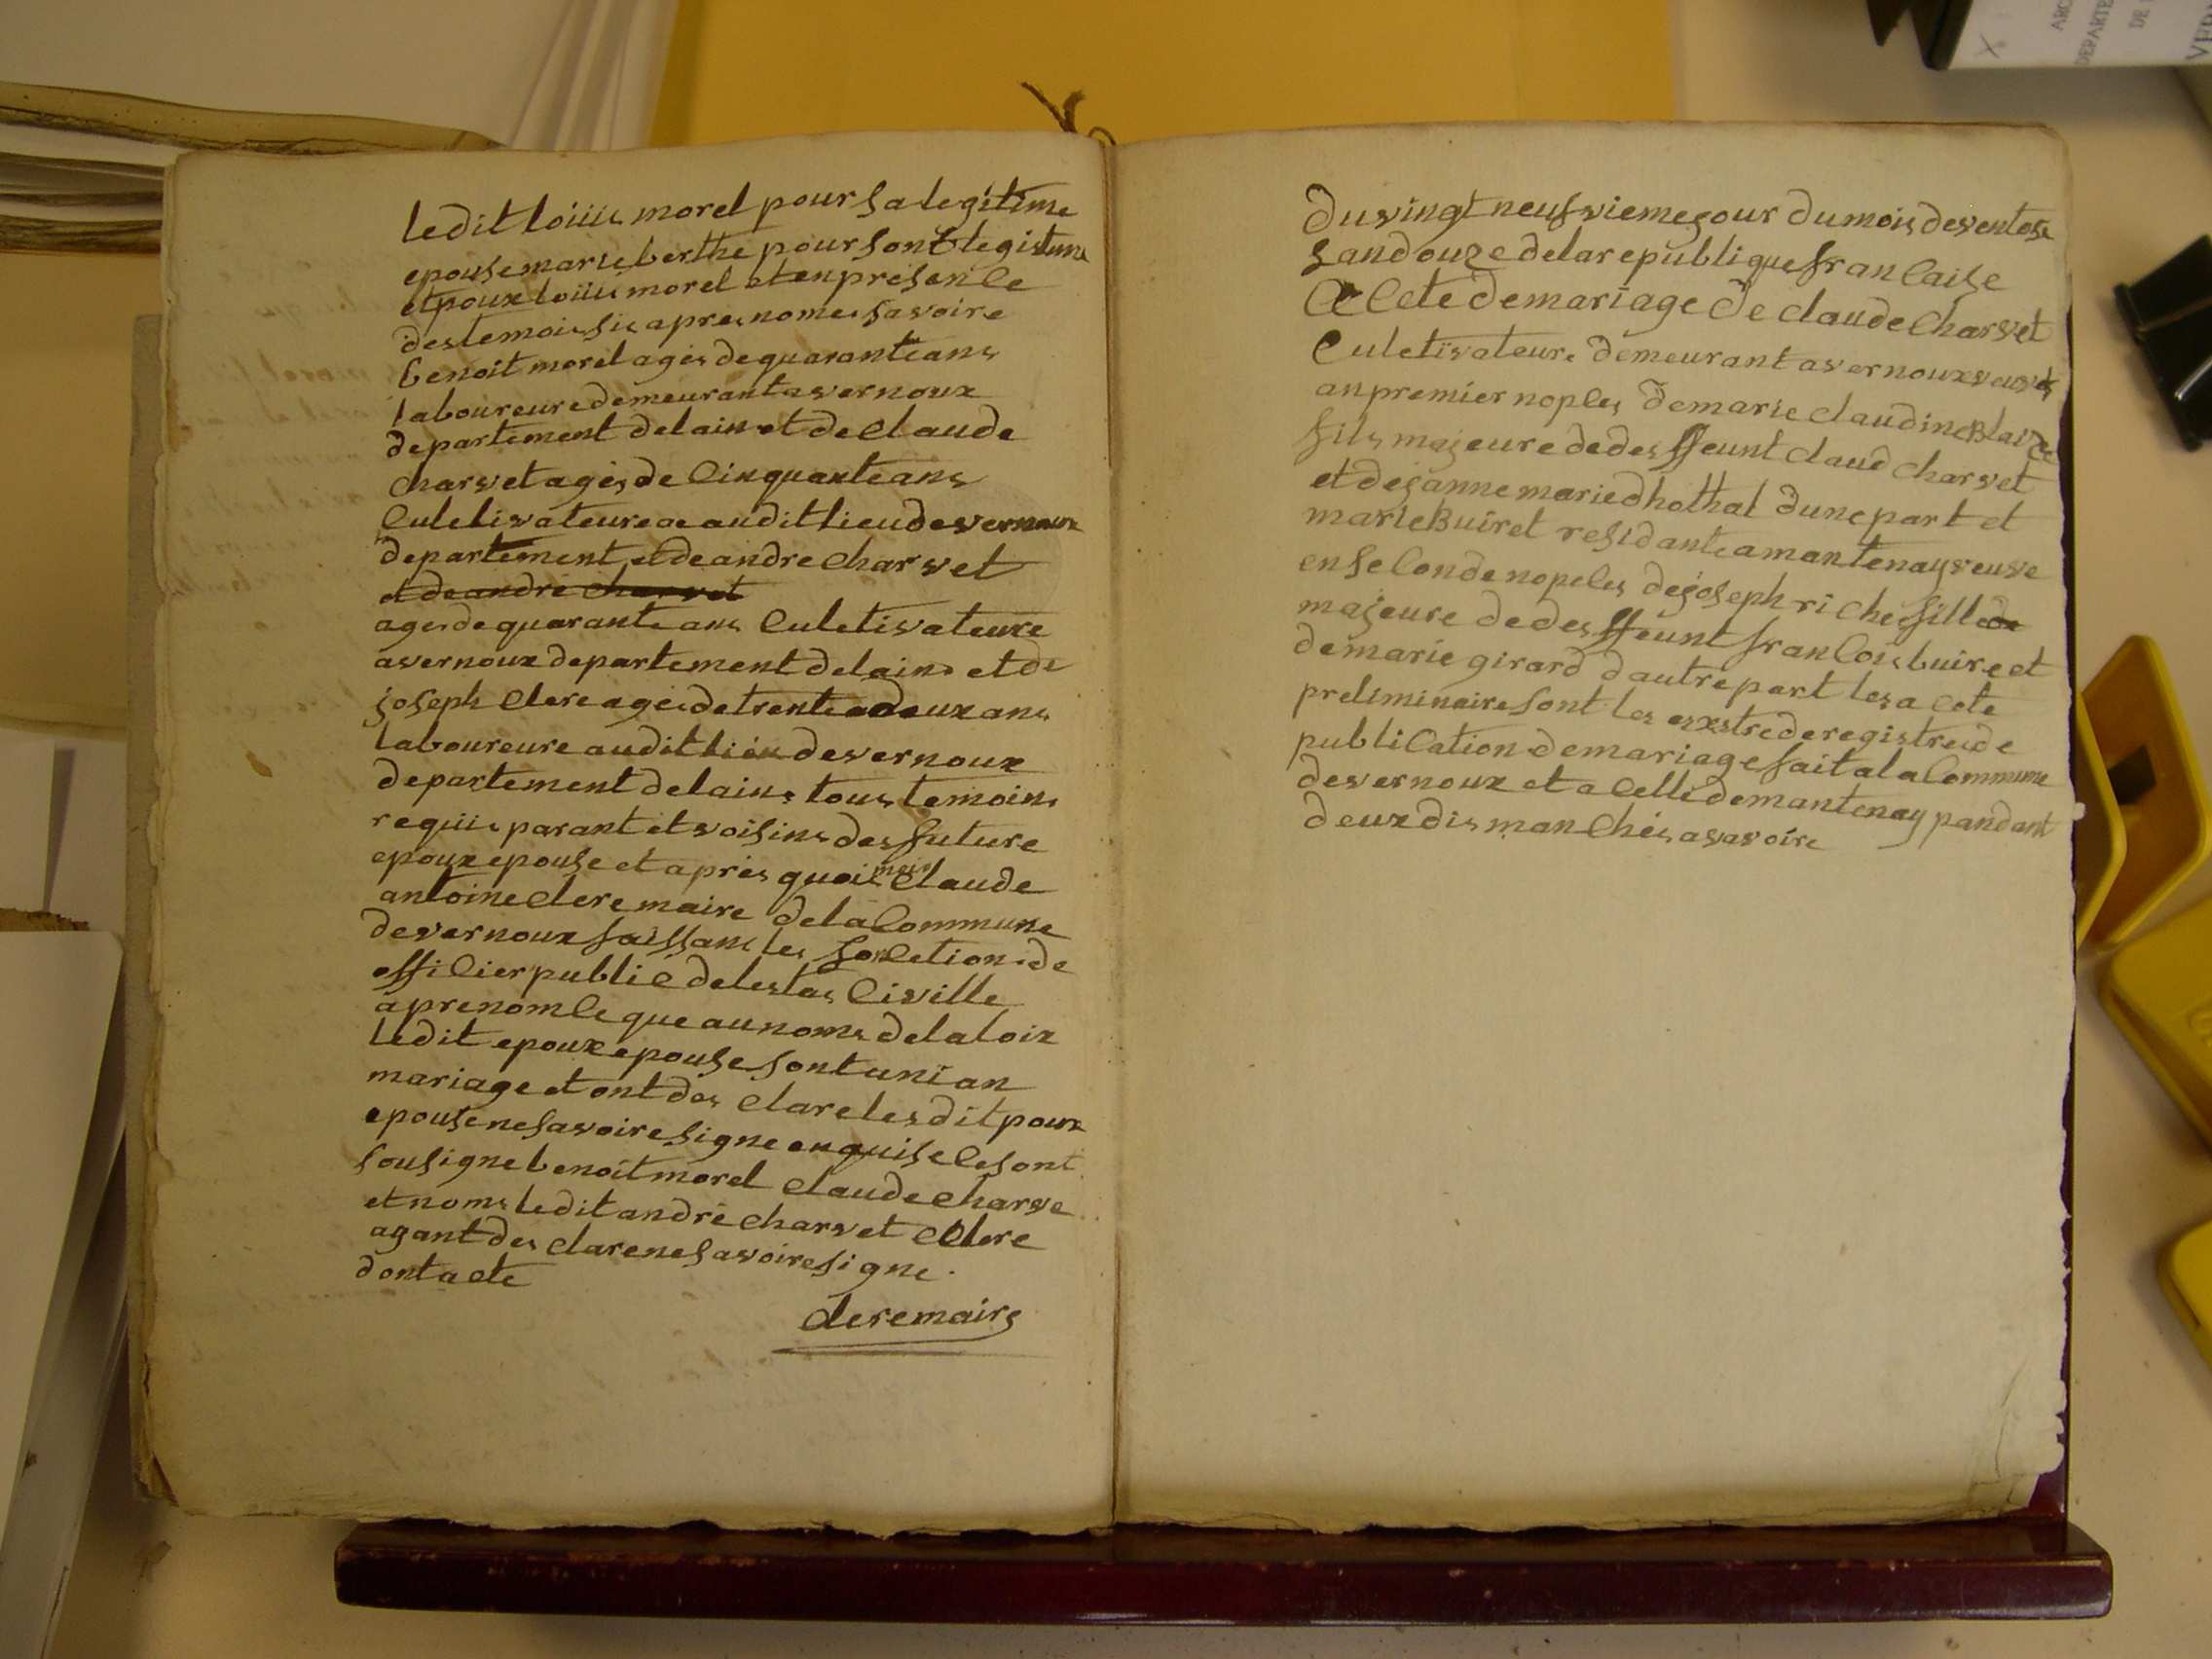 ledit loiiis morel pour sa legitime
epouse marie berthe pour sont legistime
etpoux loiiis morel et en presence
des temois sis apres nomes savoire
benoit morel ages de quarante ans
laboureure demeurant a vernoux
departement de lain et de claude
charvet ages de cinquante ans
culetivateure audit lieu de vernoux
departement et de andre charvet
et de andre charvet
ages de quarante ans culetivateure
a vernoux departement de lains et de
joseph clere ages de trente deux ans
laboureure audit lieu de vernoux
departement de lains tous temoins
requis parant et voisins des future
epoux epouse et apres quoi mois claude
antoine clere maire de la commune
de vernoux faissans les fonction de
officier public de lestas civille
a prenomce que au noms de la loix
ledit epoux epouse sont uni an
mariage et ont des clare les dit poux
epouse ne savoire signe enquis ce sont
sousigne benoit morel claude charve
et noms ledit andré charvet clere
agant des clare ne savoire signe
dont acte
clere maire
du vingt neufvieme jour du mois de ventose
lan douze de la republique francaise
Acte de mariage de claude charvet
culetivateure demeurant a vernoux veuve
an premier noples de marie claudine Blaize
fils majeure de des ffeunt claud charvet
et de janne marie dhothal dune part et
marie Buiret residante a mantenay veuve
en seconde nopeles de joseph riche fille de
majeure de des ffeunt francois buire et
de marie girard dautre part les acote
preliminaire sont les exstre de registre de
publication de mariage fait a la commune
de vernoux et a celle de mantenay pandant
deux dismanches a savoire
ARC
DEPARTE
DE
VER
X